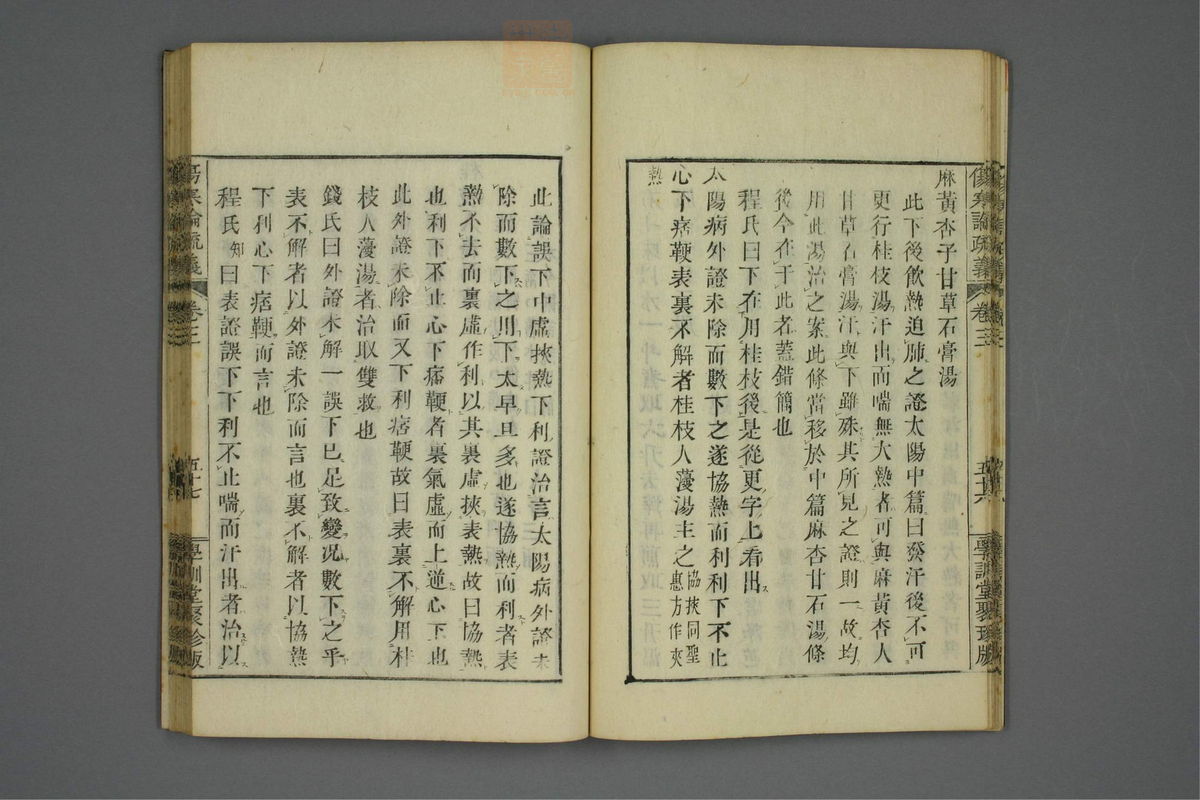 麻黃杏子甘草石膏湯
此下後飲熱迫肺之證太陽中篇曰發汗後不可
更行桂枝湯汗出而喘無大熱者可與麻黃杏人
甘草石膏湯汗與下雖殊其所見之證則一故均
用此湯治之案此條當移於中篇麻杏甘石湯條
後今在于此者蓋錯簡也
程氏曰下在用桂枝後是從更字上看出
太陽病外證未除而數下之遂協熱而利利下不止
心下痞鞕表裏不解者桂枝人薓湯主之協挾同聖惠方作夾
熱
傷寒論疏義 卷三 五十六 學訓堂聚珍版
此論誤下中虛挾熱下利證治言太陽病外證未
除而數下之用下太早且多也遂協熱而利者表
熱不去而裏虛作利以其裏虛挾表熱故曰協熱
也利下不止心下痞鞕者裏氣虛而上逆心下也
此外證未除而又下利痞鞕故曰表裏不解用桂
枝人薓湯者治取雙救也
錢氏曰外證未解一誤下已足致變況數下之乎
表不解者以外證未除而言也裏不解者以協熱
下利心下痞鞕而言也
程氏知曰表證誤下下利不止喘而汗出者治以
傷寒論疏義 卷三 五十七 學訓堂聚珍版